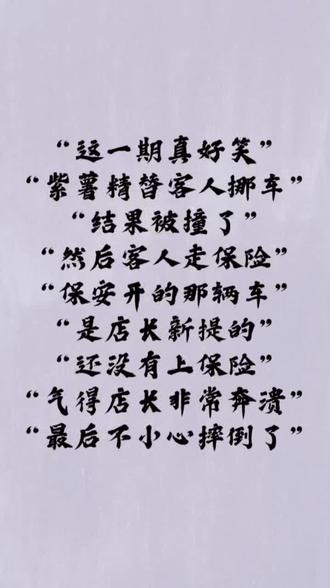 “这一期真好笑”
“紫薯精替客人挪车”
“结果被撞了”
“然后客人走保险”
“保安开的那辆车”
“是店长新提的”
“还没有上保险”
“气得店长非常奔溃”
“最后不小心摔倒了”